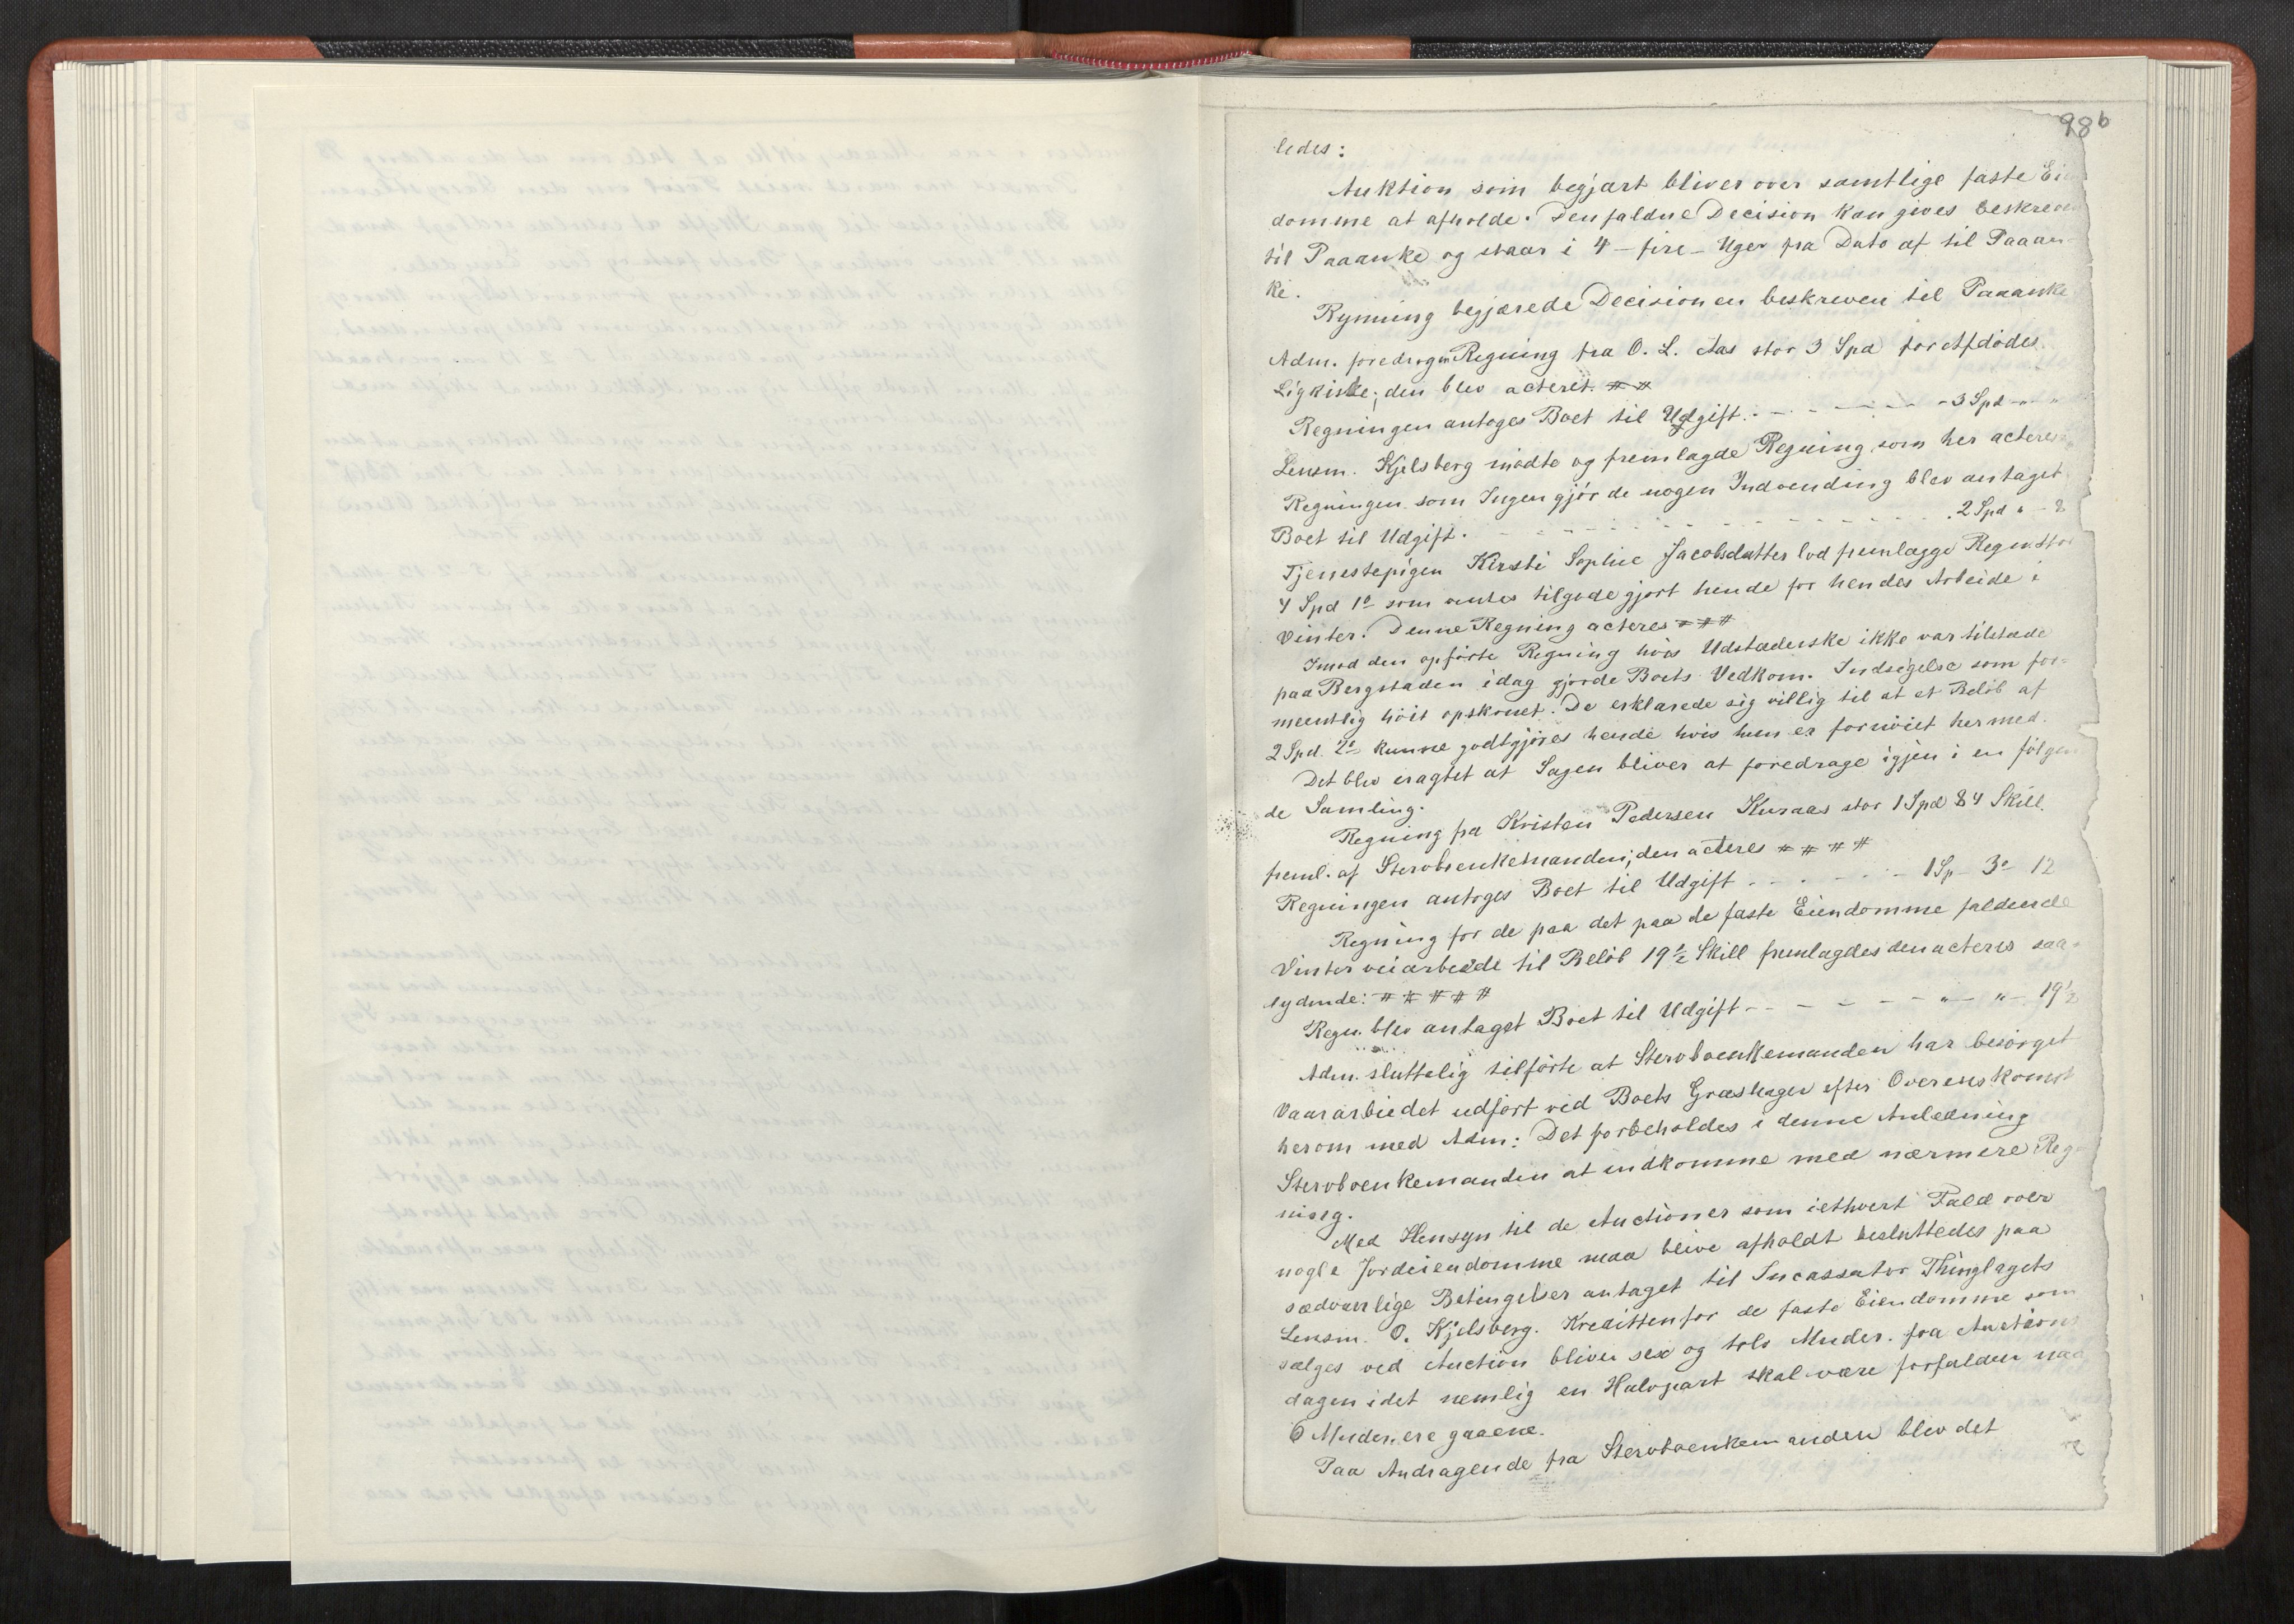 98 b
ledes:
Auktion som begjært bliver over samtlige faste Ein
domme at afholde. Den faldne Decision kan gives beskreven
til Paaanke og staar i 4 - fire - Uger fra Dato af til Paaan-
ke.
Rynning begjærede Decisionen beskreven til Paaanke
Adm. foredrogen Regning fra O. L. Aas stor 3 Spd for Afdødes
Ligkiste; den blev acteret. # #
Regningen antoges Boet til Udgift. - - - - - - 3 Spd - " - "
Lensm. Kjelsberg mødte og fremlagde Regning som her acteres
Regningen som Ingen gjørde nogen Indvending blev antaget
Boet til Udgift. - - - - - - - - - 2 Spd " - 8
Tjenestepigen Kirsti Sophie Jacobsdatter lod fremlægge Regn. stor
4 Spd 1º som antes tilgodegjort hende for hendes Arbeide i
Vinter. Denne Regning acteres # # #
Imod den opførte Regning hvis Udstæderske ikke var tilstæde
paa Bergstaden idag gjorde Boets Vedkom. Indsigelse som for-
meentlig høit opskruet. De erklærede sig villig til at et Beløb af
2 Spd. 2º kunne godtgjøres hende hvis hun er fornøiet hermed.
Det blev eragtet at Sagen bliver at foredrage igjen i en følgen
de Samling.
Regning fra Kristen Pedersen Kuraas stor 1 Spd 84 Skill.
freml. af Stervboenkemanden; den acteres # # # #
Regningen antoges Boet til Udgift - - - - - - 1 Sp - 3º - 12
Regning for de paa det paa de faste Eiendomme faldende
Vinterveiarbeide til Beløb 19½ Skill fremlagdes den acteres saa-
lydende: # # # # #
Regn. blev antaget Boet til Udgift - - - - - - " - " - 19½
Adm. sluttelig tilførte at Stervboenkemanden har besørget
Vaararbiedet udført ved Boets Græshager efter Overenskomst
herom med Adm: Det forbeholdes i denne Anledning
Stervboenkemanden at indkomme med nærmere Reg-
ning.
Med Hensyn til de Auctioner som iethvert Fald over
nogle Jordeiendomme maa blive afholdt besluttedes paa
sædvanlige Betingelser antaget til Incassator Thinglagets
Lensm. O. Kjelsberg. Kredittenfor de faste Eiendomme som
sælges ved Auction bliver sex og tolv Mnder. fra Auctions
dagen idet nemlig en Halvpart skal være forfalden naar
6 Mnder. ere gaaene.
Paa Andragende fra Stervboenkemanden blev det